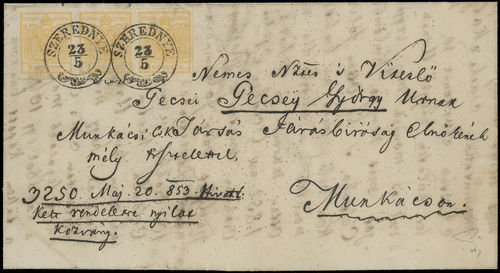 SZEREDNYE
23
5
SZEREDNYE
23
5
Nemes Nzes és Vitézlő
Gecsei Gecsey György Urnak
Munkácsi Társas Járásbiróság Elnökének
mély tisztelettel.
3250. Máj 20. 853.
rendeletre nyilat
kozvány.
Munkácson.